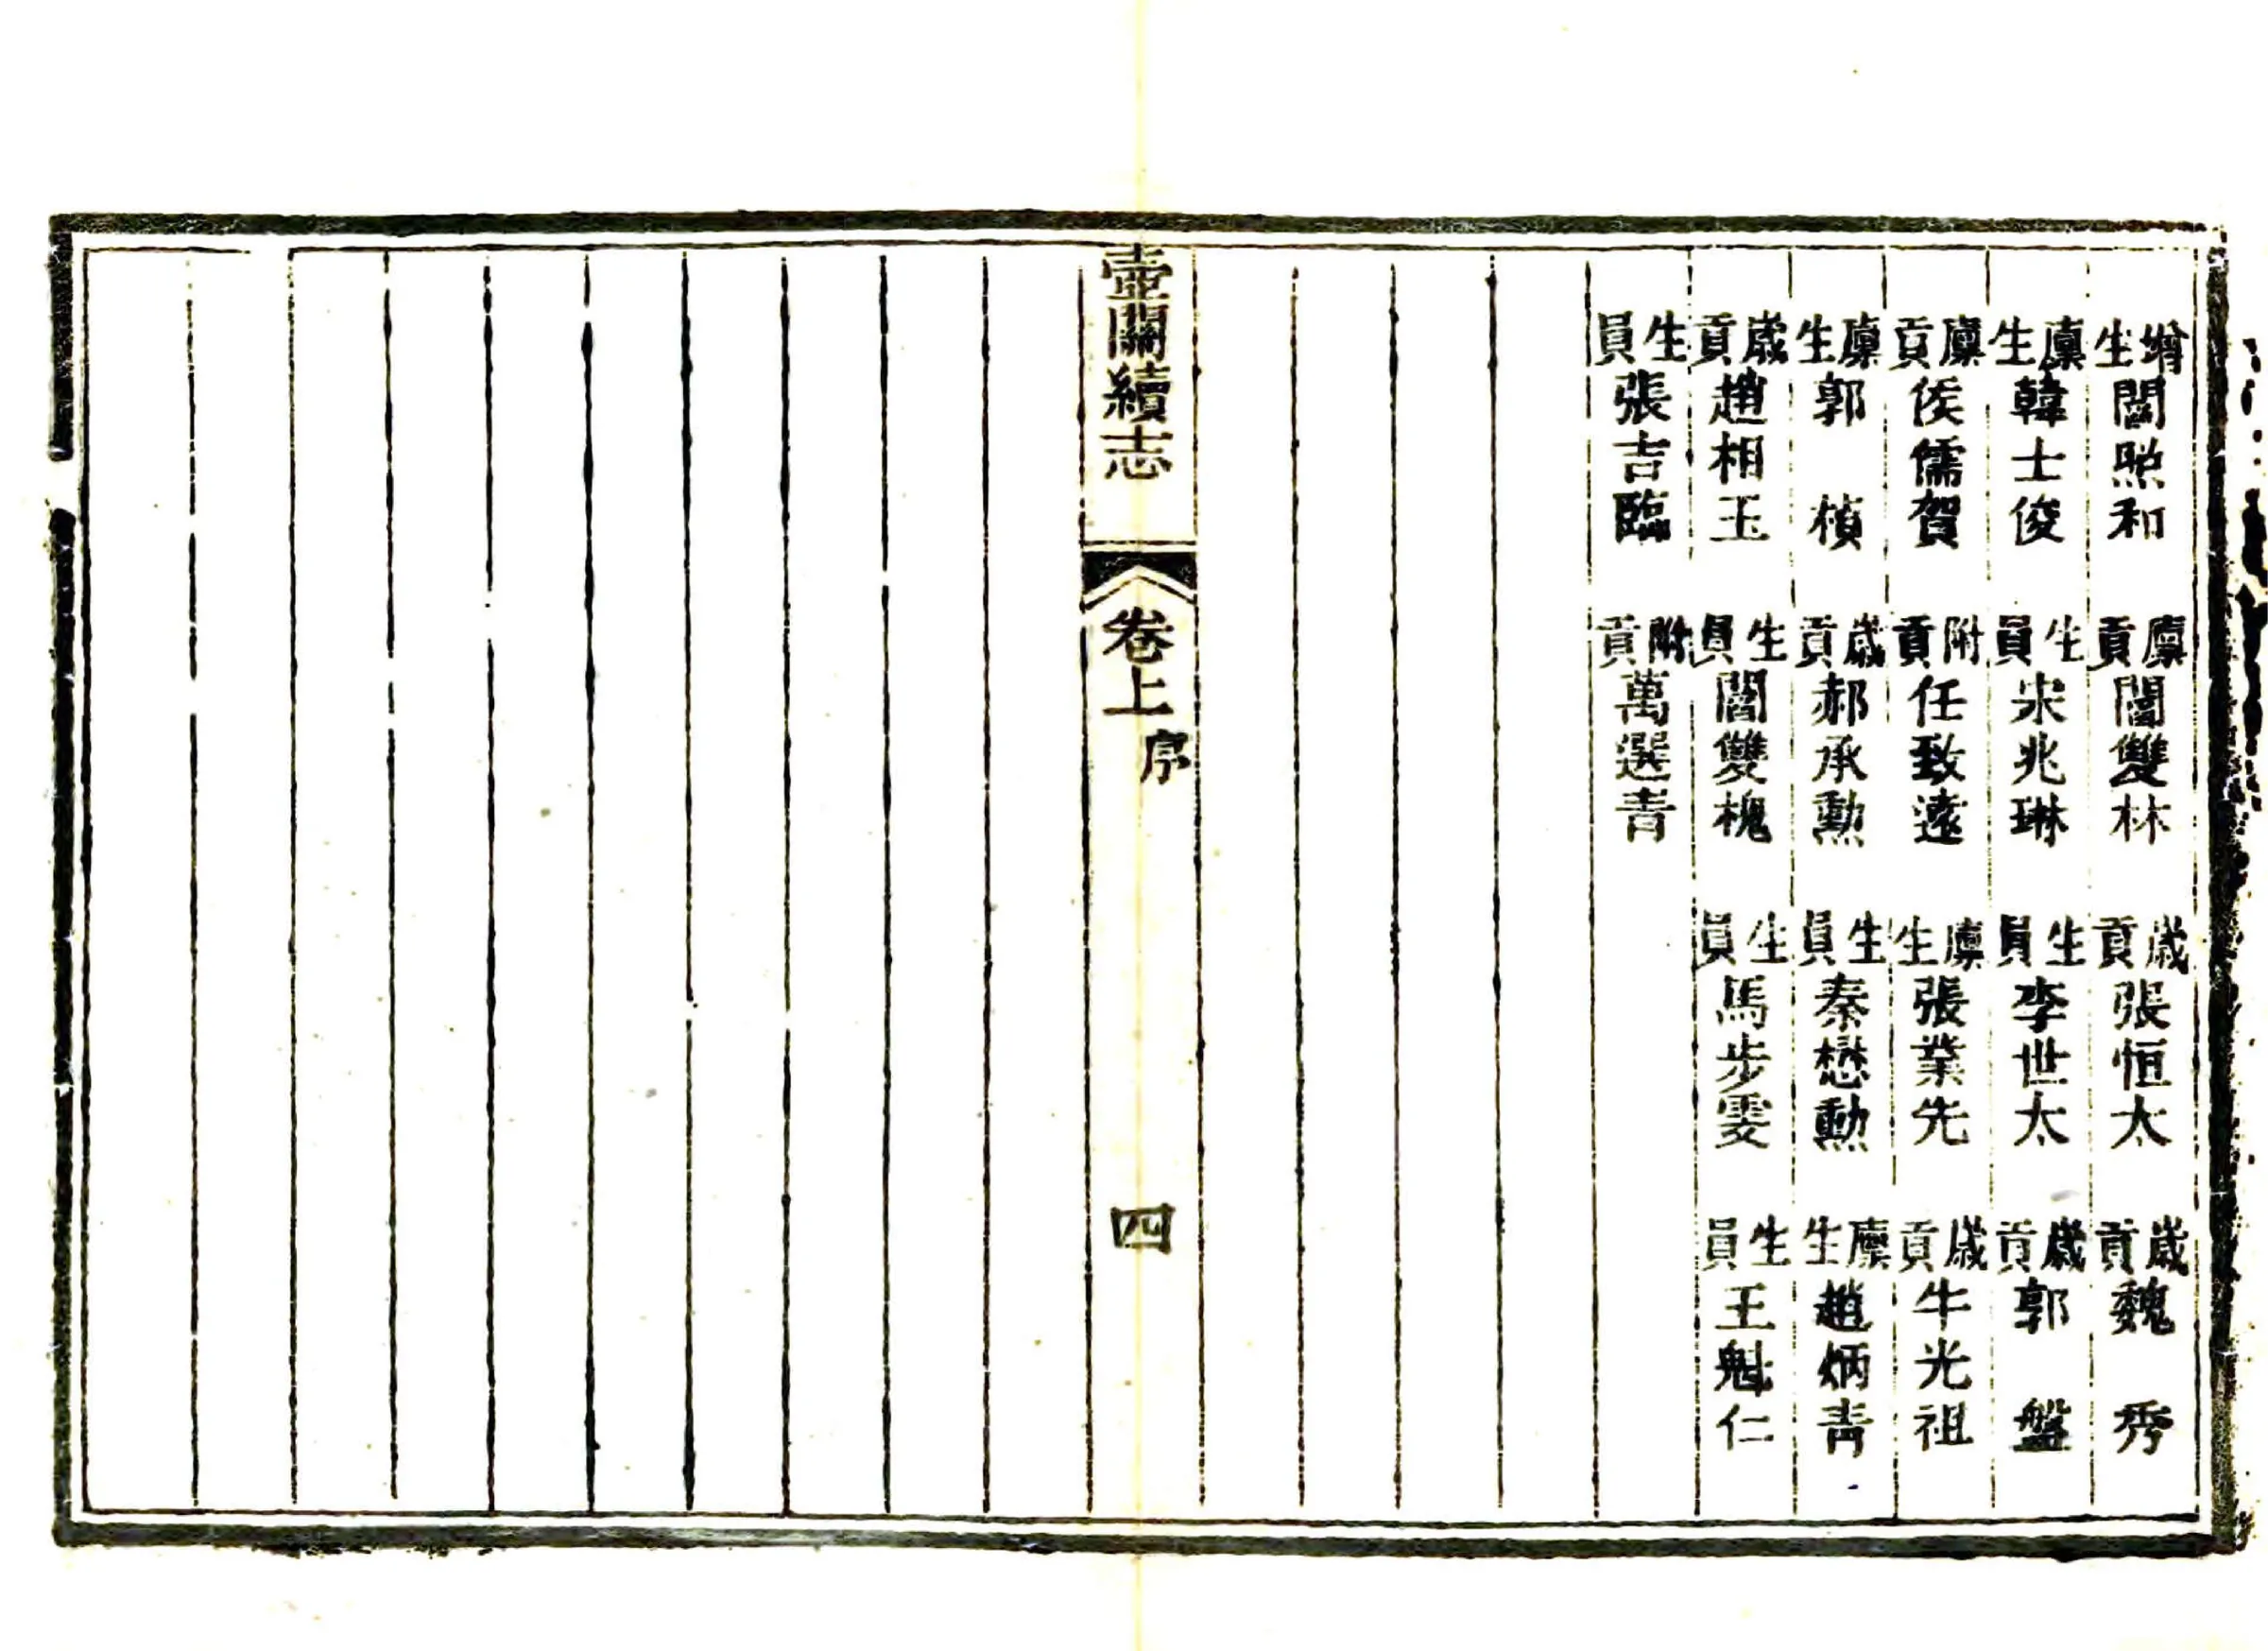 增生閻煦和　廩貢閻雙林　歲貢張恒太　歲貢魏　秀
廩生韓士俊　生員宋兆琳　生員李世太　歲貢郭　盤
廩貢侯儒賀　附貢任致遠　廩生張業先　歲貢牛光祖
廩生郭　楨　歲貢郝承勳　生員秦懋勳　廩生趙炳青
歲貢趙相玉　生員閻雙槐　生員馬步雯　生員王魁仁
生員張吉臨　附貢萬選青
壺關續志　卷上　序　四